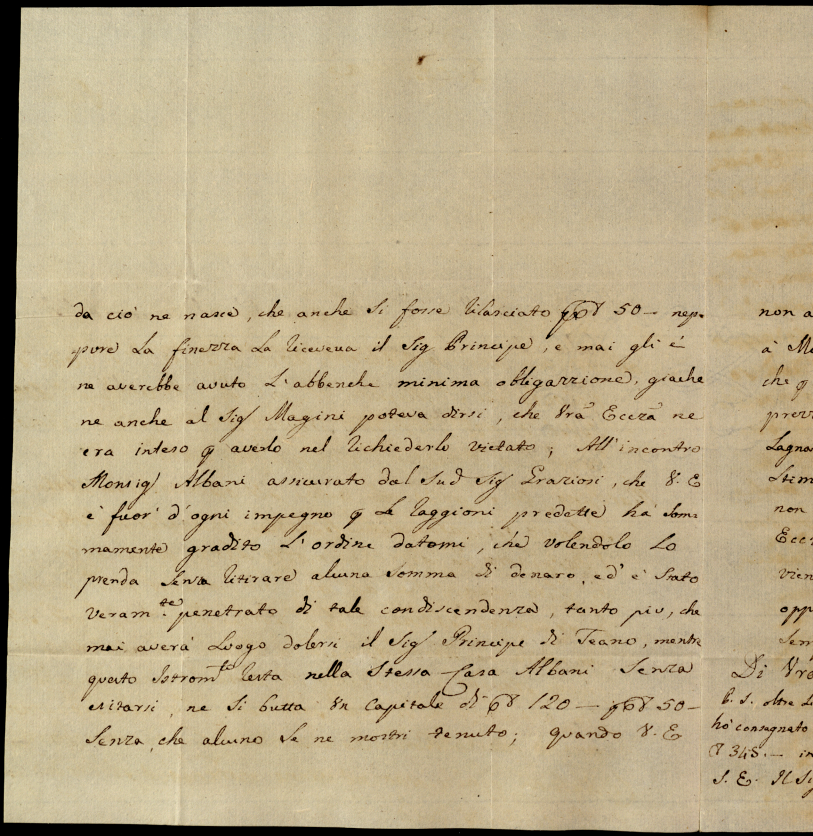 da ciò ne nasce, che anche si fosse rilasciato p 50 — nep-
pure La finezza La riceveva il Sig Principe, e mai gli è
ne averebbe avuto L'abbenche minima obligazzione, giache
ne anche al Sig Magini poteva dirsi, che Vrã Ecczã ne
era inteso p averlo nel richiederlo vietato; All'incontro
Monsig Albani assicurato dal Sud Sig Graziosi, che V. E
è fuor d'ogni impegno p Le raggioni predette hà som-
mamente gradito L'ordine datomi, che volendolo Lo
prenda senza ritirare alcuna somma di denaro, ed' è stato
veram.te penetrato di tale condiscendenza, tanto piu, che
mai averà Luogo dolersi il Sig Principe di Teano, mentre
questo Istrom.to resta nella stessa Casa Albani senza
esitarsi, ne si butta un Capitale di 120 — p 50 —
senza, che alcuno se ne mostri tenuto; quando V. E
non a
à Mo
che p
prezz
Lagna
stim
non
Ecc
vien
opp
sem
Di Vrã
b. s. oltre
hò consegnato
348. — in
S. E. Il Sig